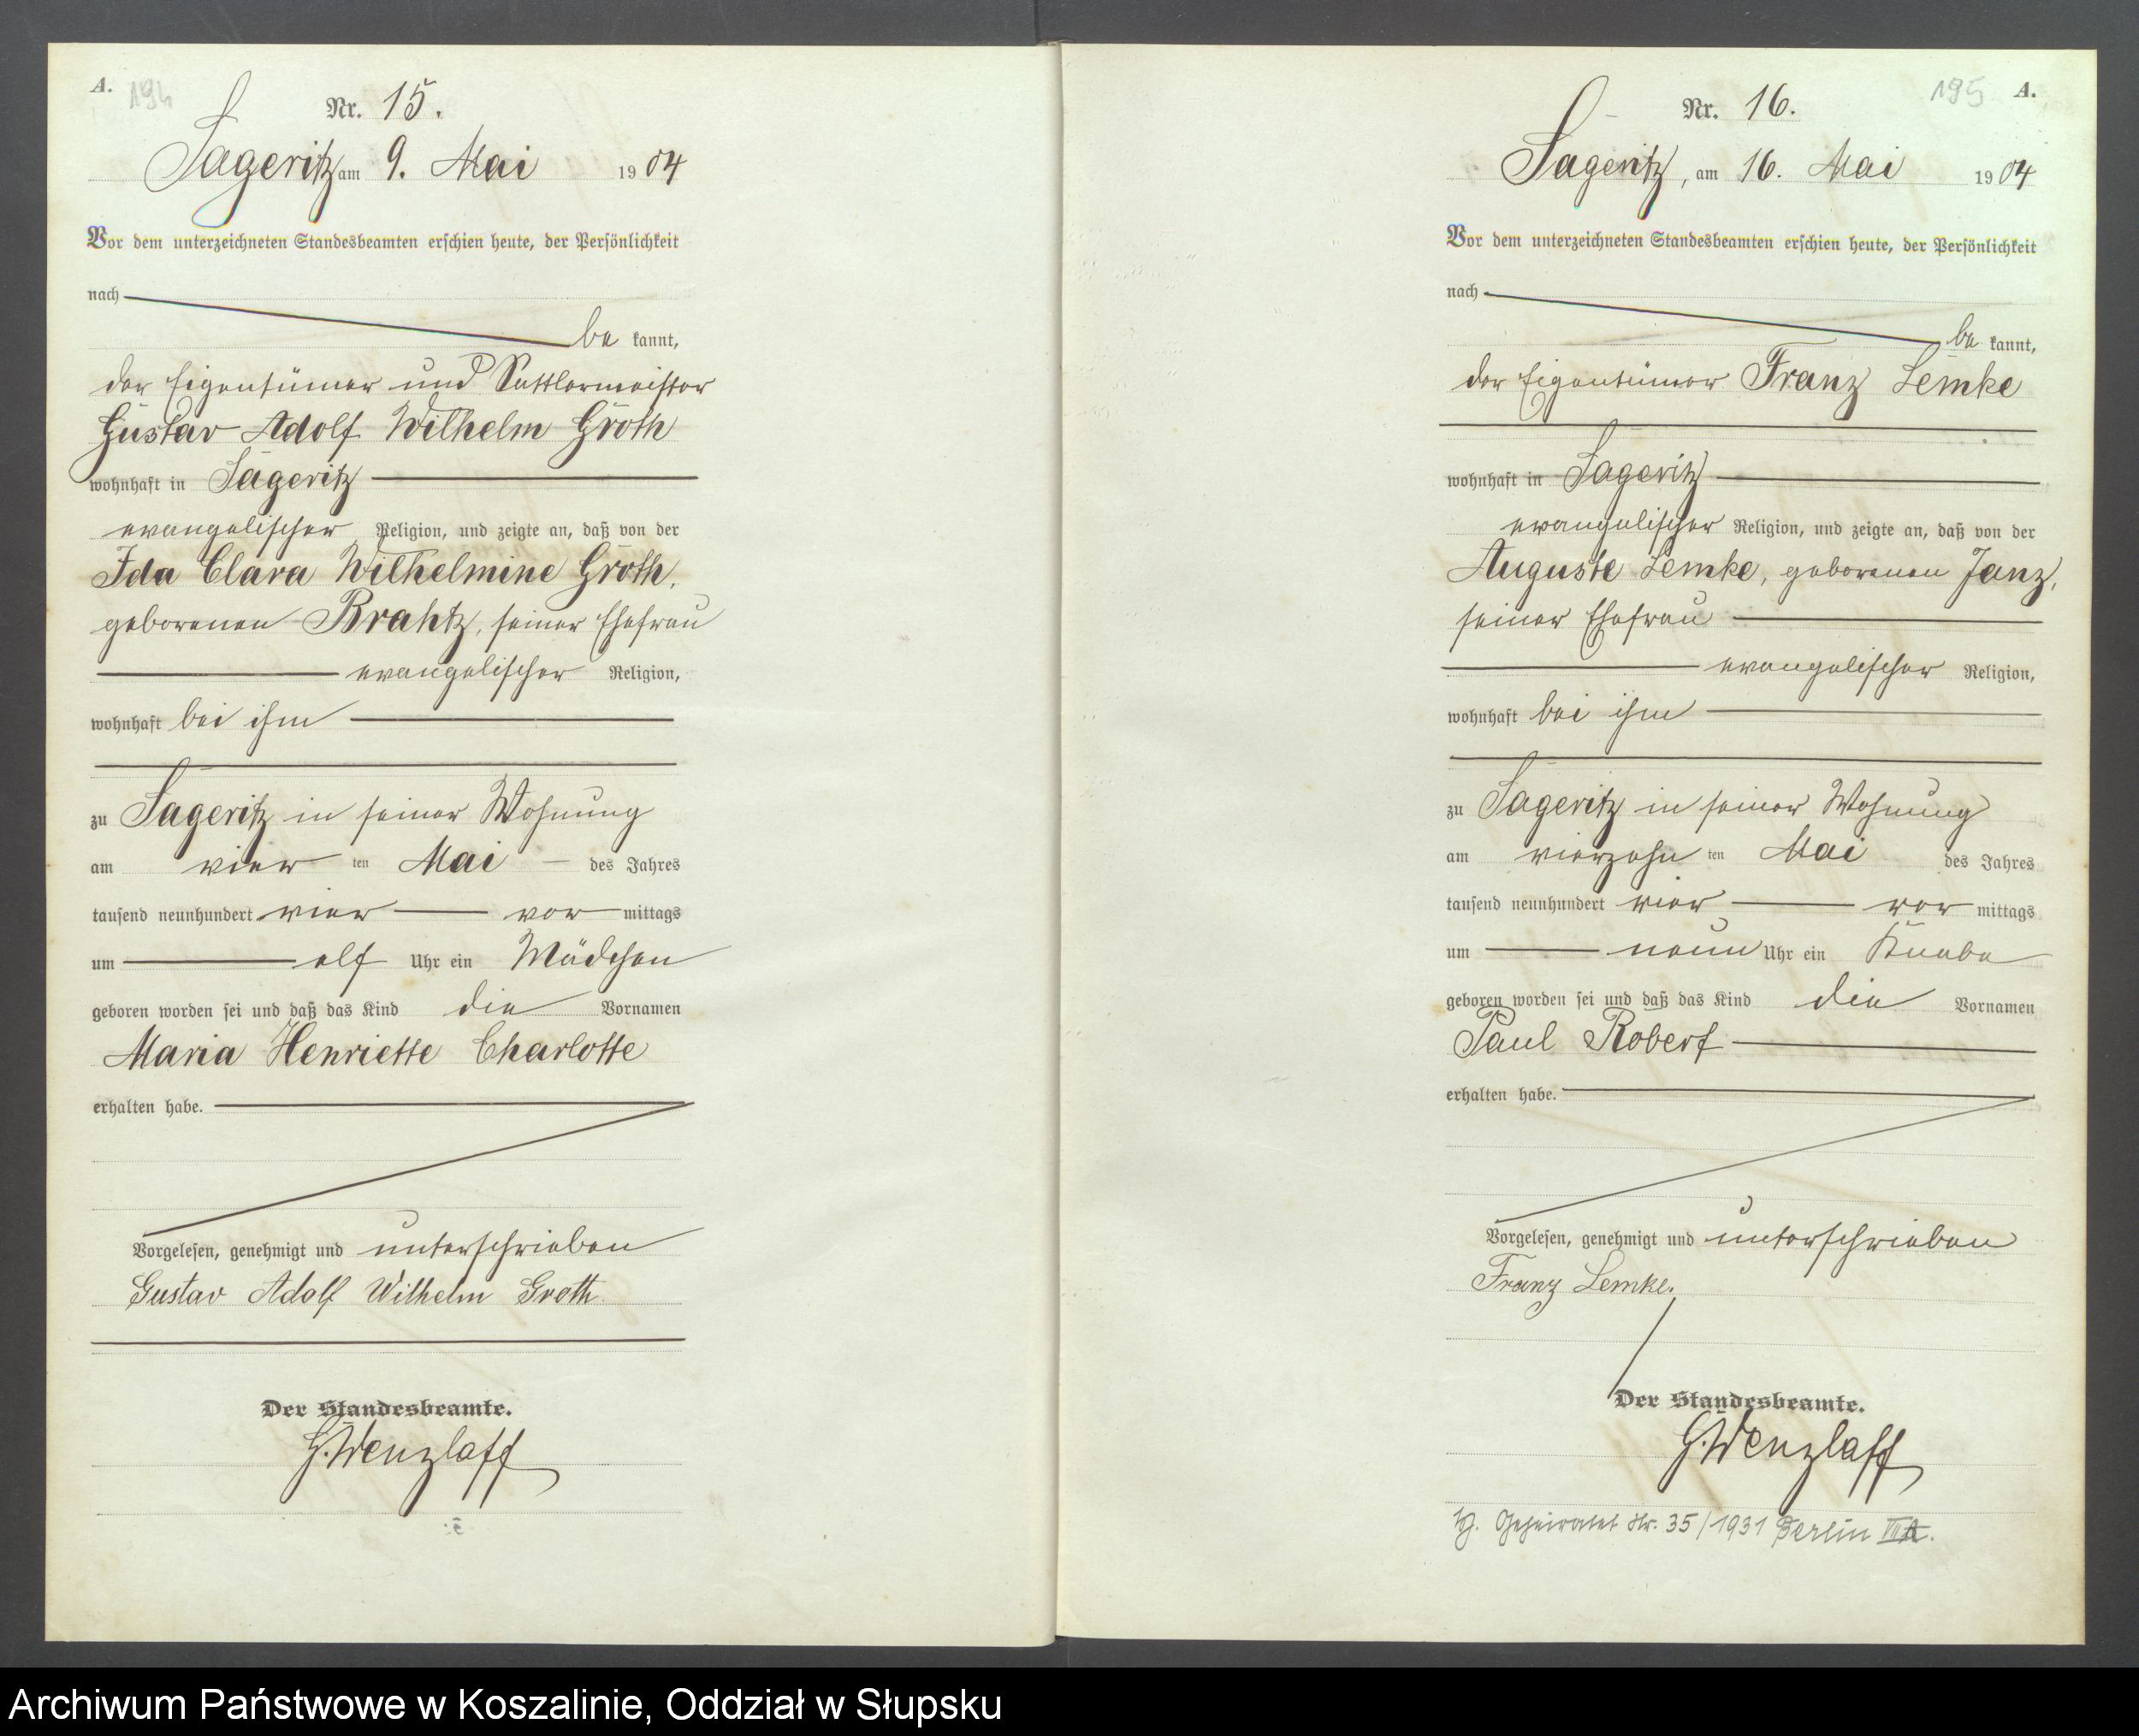 A.
194
Nr. 15.
Sageritz am 9. Mai 1904
Vor dem unterzeichneten Standesbeamten erschien heute, der Persönlichkeit
nach
be kannt,
der Eigentümer und Sattlermeister
Gustav Adolf Wilhelm Groth
wohnhaft in Sageritz
evangelischer Religion, und zeigte an, daß von der
Ida Clara Wilhelmine Groth,
geborenen Brahtz, seiner Ehefrau
evangelischer Religion,
wohnhaft bei ihm
zu Sageritz in seiner Wohnung
am vier ten Mai des Jahres
tausend neunhundert vier vor mittags
um elf Uhr ein Mädchen
geboren worden sei und daß das Kind die Vornamen
Maria Henriette Charlotte
erhalten habe.
Vorgelesen, genehmigt und unterschrieben
Gustav Adolf Wilhelm Groth
Der Standesbeamte.
G. Wenzlaff
195
A.
Nr. 16.
Sageritz, am 16. Mai 1904
Vor dem unterzeichneten Standesbeamten erschien heute, der Persönlichkeit
nach
be kannt,
der Eigentümer Franz Lemke
wohnhaft in Sageritz
evangelischer Religion, und zeigte an, daß von der
Auguste Lemke, geborenen Janz,
seiner Ehefrau
evangelischer Religion,
wohnhaft bei ihm
zu Sageritz in seiner Wohnung
am vierzehn ten Mai des Jahres
tausend neunhundert vier vor mittags
um neun Uhr ein Knabe
geboren worden sei und daß das Kind die Vornamen
Paul Robert
erhalten habe.
Vorgelesen, genehmigt und unterschrieben
Franz Lemke.
Der Standesbeamte.
G. Wenzlaff
Geheiratet Nr. 35/1931 Berlin VII A.
Archiwum Państwowe w Koszalinie, Oddział w Słupsku